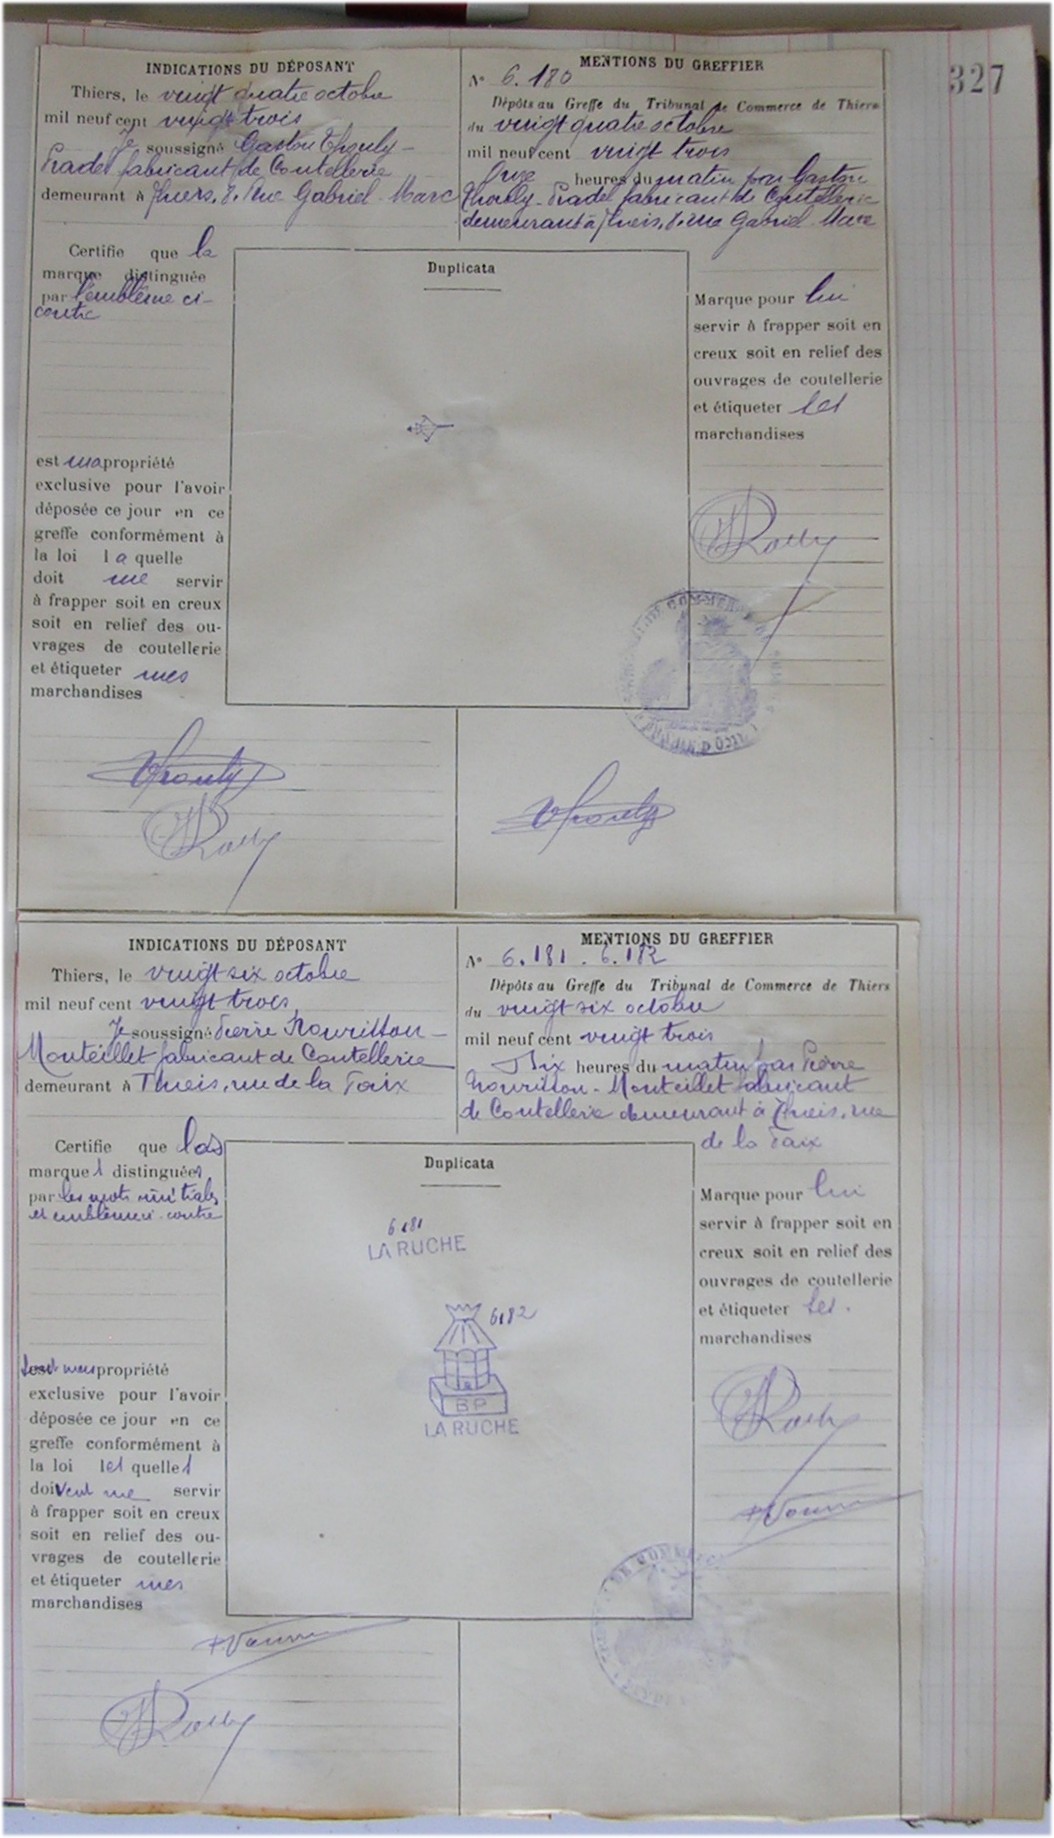 327
INDICATIONS DU DÉPOSANT
Thiers, le vingt quatre octobre
mil neuf cent vingt trois
Je soussigné Gaston Thouly-
Pradel fabricant de Coutellerie
demeurant à Thiers, 8, rue Gabriel-Marc
MENTIONS DU GREFFIER
N° 6.180
Dépôts au Greffe du Tribunal de Commerce de Thiers
du vingt quatre octobre
mil neuf cent vingt trois
Onze heures du matin par Gaston
Thouly-Pradel fabricant de Coutellerie
demeurant à Thiers, 8, rue Gabriel-Marc
Certifie que la
marque distinguée
par l'emblème ci-
contre
est ma propriété
exclusive pour l'avoir
déposée ce jour en ce
greffe conformément à
la loi laquelle
doit me servir
à frapper soit en creux
soit en relief des ou-
vrages de coutellerie
et étiqueter mes
marchandises
Duplicata
Marque pour lui
servir à frapper soit en
creux soit en relief des
ouvrages de coutellerie
et étiqueter ses
marchandises
DE COMMERCE
INDICATIONS DU DÉPOSANT
Thiers, le vingt six octobre
mil neuf cent vingt trois
Je soussigné Pierre Nourisson-
Monteillet fabricant de Coutellerie
demeurant à Thiers, rue de la Paix
MENTIONS DU GREFFIER
N° 6.181. 6.182
Dépôts au Greffe du Tribunal de Commerce de Thiers
du vingt six octobre
mil neuf cent vingt trois
Dix heures du matin par Pierre
Nourisson-Monteillet fabricant
de Coutellerie demeurant à Thiers, rue
de la Paix
Certifie que les
marques distinguées
par les mots initiales
et emblème ci-contre
sont mes propriété
exclusive pour l'avoir
déposée ce jour en ce
greffe conformément à
la loi lesquelles
doivent me servir
à frapper soit en creux
soit en relief des ou-
vrages de coutellerie
et étiqueter mes
marchandises
Duplicata
6181
LA RUCHE
6182
BP
LA RUCHE
Marque pour lui
servir à frapper soit en
creux soit en relief des
ouvrages de coutellerie
et étiqueter ses.
marchandises
DE COMMERCE